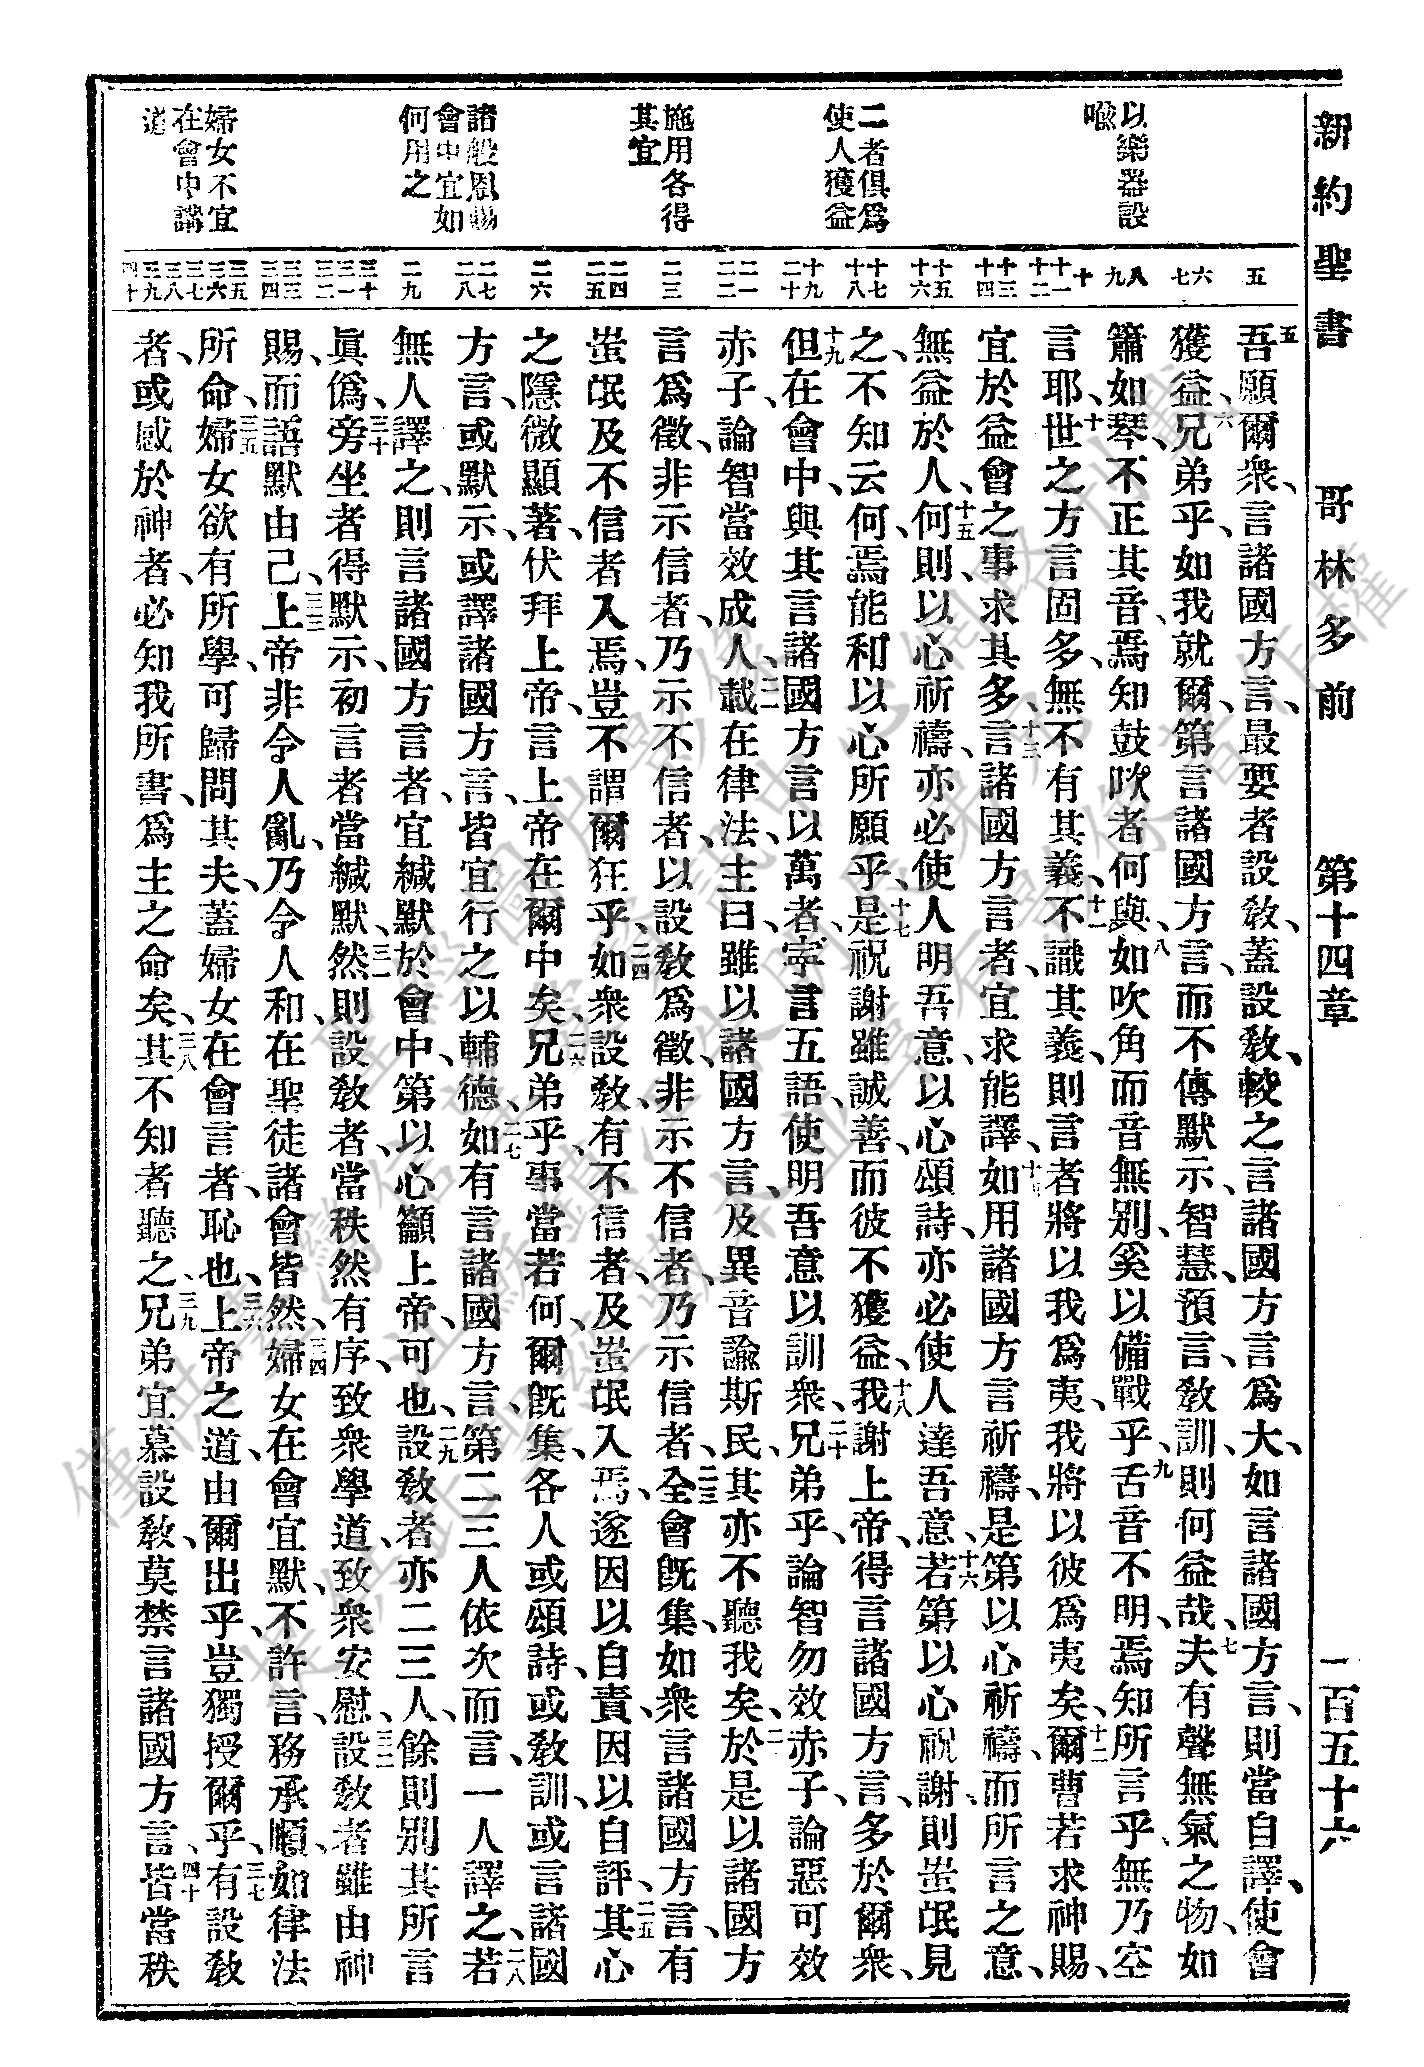 新約聖書　哥林多前　第十四章　一百五十六
以樂器設
喩
二者俱爲
使人獲益
施用各得
其宜
諸般恩賜
會中宜如
何用之
婦女不宜
在會中講
道
五　六　七　八　九　十　十一　十二　十三　十四　十五　十六　十七　十八　十九　二十　二一　二二　二三　二四　二五　二六　二七　二八　二九　三十　三一　三二　三三　三四　三五　三六　三七　三八　三九　四十
五吾願爾衆、言諸國方言、最要者設敎、蓋設敎、較之言諸國方言爲大、如言諸國方言、則當自譯、使會
獲益、六兄弟乎、如我就爾、第言諸國方言、而不傳默示、智慧、預言、敎訓、則何益哉、七夫有聲無氣之物、如
簫如琴、不正其音、焉知鼓吹者何與、八如吹角而音無別、奚以備戰乎、九舌音不明、焉知所言乎、無乃空
言耶、十世之方言固多、無不有其義、十一不識其義、則言者將以我爲夷、我將以彼爲夷矣、十二爾曹若求神賜、
宜於益會之事求其多、十三言諸國方言者、宜求能譯、十四如用諸國方言祈禱、是第以心祈禱、而所言之意、
無益於人、十五何則、以心祈禱、亦必使人明吾意、以心頌詩、亦必使人達吾意、十六若第以心祝謝、則蚩氓見
之、不知云何、焉能和以心所願乎、十七是祝謝雖誠善、而彼不獲益、十八我謝上帝、得言諸國方言、多於爾衆、
十九但在會中、與其言諸國方言以萬者、寧言五語、使明吾意以訓衆、二十兄弟乎、論智勿效赤子、論惡可效
赤子、論智當效成人、二一載在律法、主曰、雖以諸國方言、及異音諭斯民、其亦不聽我矣、二二於是以諸國方
言爲徵、非示信者、乃示不信者、以設敎爲徵、非示不信者、乃示信者、二三全會旣集、如衆言諸國方言、有
蚩氓及不信者入焉、豈不謂爾狂乎、二四如衆設敎、有不信者、及蚩氓入焉、遂因以自責、因以自評、二五其心
之隱微顯著、伏拜上帝、言上帝在爾中矣、二六兄弟乎、事當若何、爾旣集、各人或頌詩、或敎訓、或言諸國
方言、或默示、或譯諸國方言、皆宜行之以輔德、二七如有言諸國方言、第二三人依次而言、一人譯之、二八若
無人譯之、則言諸國方言者、宜緘默於會中、第以心籲上帝、可也、二九設敎者亦二三人、餘則別其所言
眞僞、三十旁坐者得默示、初言者當緘默、三一然則設敎者、當秩然有序、致衆學道、致衆安慰、三二設敎者雖由神
賜、而語默由己、三三上帝非令人亂、乃令人和、在聖徒諸會皆然、三四婦女在會宜默、不許言、務承順、如律法
所命、三五婦女欲有所學、可歸問其夫、蓋婦女在會言者、恥也、三六上帝之道、由爾出乎、豈獨授爾乎、三七有設敎
者、或感於神者、必知我所書、爲主之命矣、三八其不知者聽之、三九兄弟宜慕設敎、莫禁言諸國方言、四十皆當秩